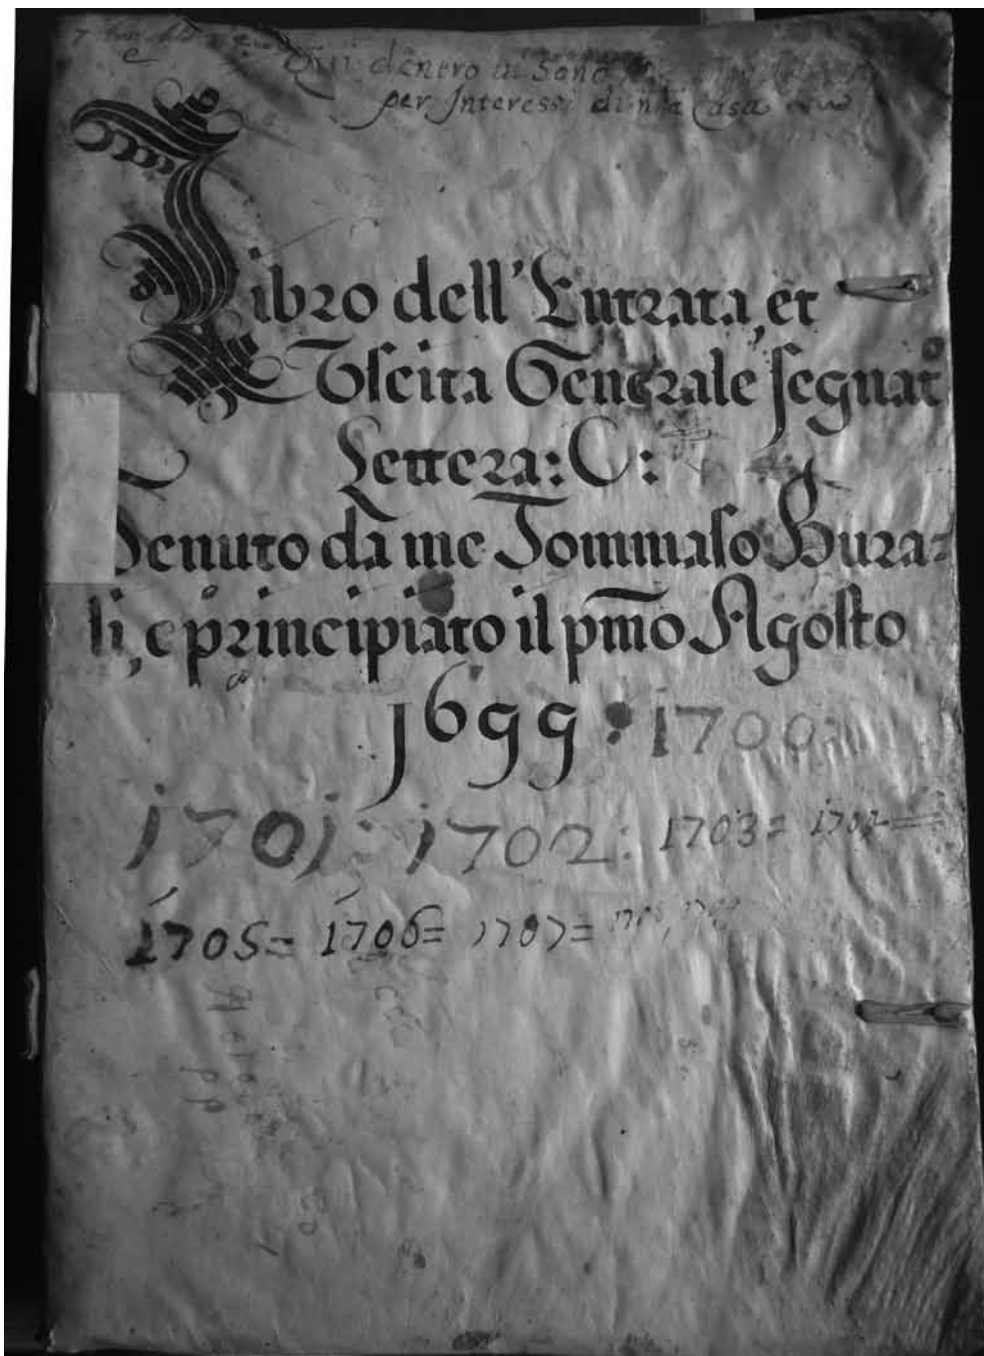 Qui dentro ui Sono
per Interessi di nra Casa
Libro dell' Entrata, et
Vscita Generale segnato
Lettera: C:
Tenuto da me Tommaso Bura=
li, e principiato il pmo Agosto
1699: 1700:
1701: 1702: 1703= 1704=
1705= 1706= 1707= 1708, 1709